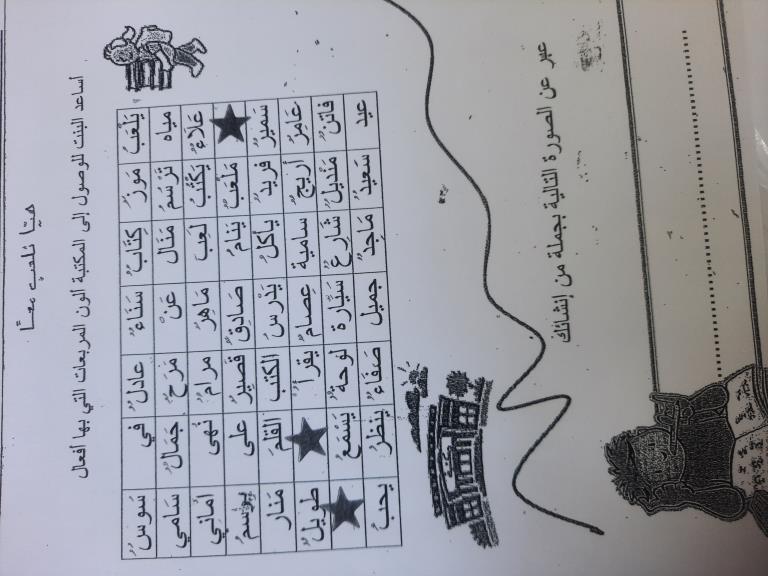 هيّا نلعب معًا
أساعد البنت للوصول إلى المكتبة ألون المربعات التي بها أفعال
يَلْعَبُ مَوْزٌ كِتَابٌ سَنَاءُ عادلٌ في سَوسٌ
مياه تَرْسُمُ مَنَال عَنْ مَرَحٌ جَمَالٌ سَامي
عَلاءُ يَكْتُبُ لَعِبَ مَاهِرٌ مرامٌ نُهى أماني
مَلْعَبٌ يَنَامُ صَادِقٌ قَصيرٌ على يرسمُ
سَميرٌ فريدٌ يأكلُ يَدْرسُ الكتب القَلَمَ مَنَار
عَامِرٌ أريجٌ سامية عِصامٌ يقرأُ طويلٌ
فاتنٌ مَنْديلٌ شَارِعٌ سَيَّارة لوحةٌ يَسْمَعُ
عيد سَعيدٌ مَاجِدٌ جميل صَفَاءُ ينظرُ يحبُ
مكتبة
عبر عن الصورة التالية بجملة من إنشائك